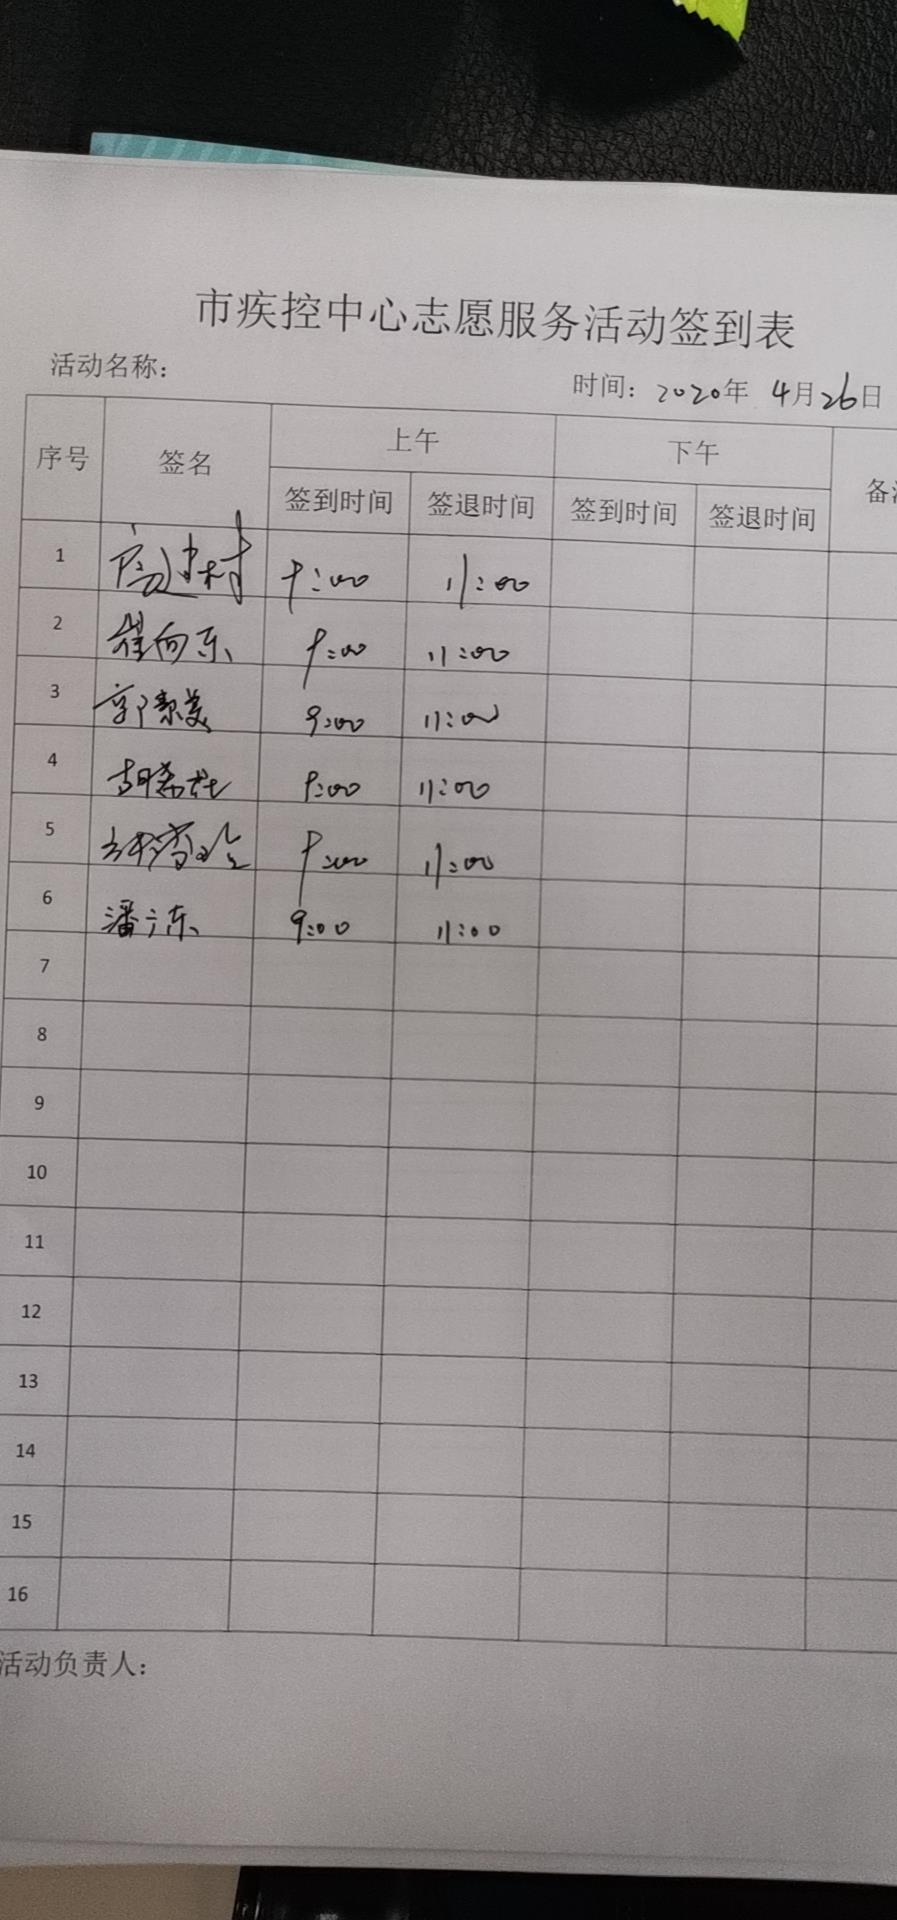 市疾控中心志愿服务活动签到表
活动名称：
时间：2020年 4月26日
序号 签名 上午 下午 备
签到时间 签退时间 签到时间 签退时间
1 9:00 11:00
2 崔向东 9:00 11:00
3 郭素美 9:00 11:00
4 9:00 11:00
5 9:00 11:00
6 潘广东 9:00 11:00
7
8
9
10
11
12
13
14
15
16
活动负责人：